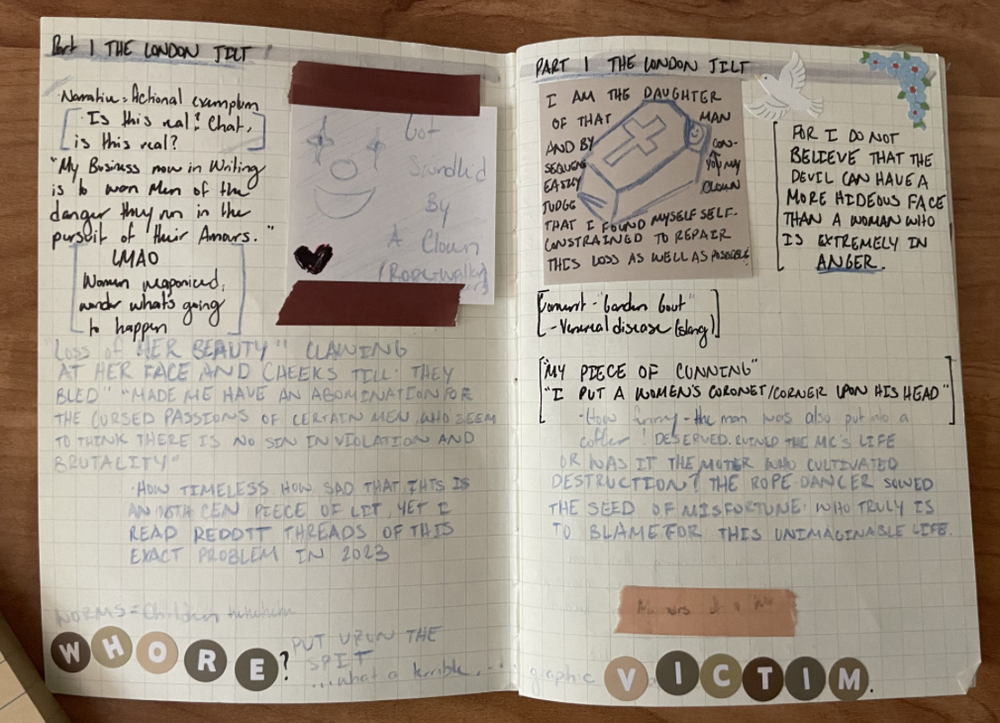 Part 1 THE LONDON JILT
Narrative = Actional exemplum
Is this real? Chat,
is this real?
"My Business now in Writing
is to warn Men of the
danger they run in the
pursuit of their Amours."
LMAO
Women weaponized,
wonder what's going
to happen
Got
Swindled
By
A
Clown
(Rope-walker)
"Loss of HER BEAUTY" CLAWING
AT HER FACE AND CHEEKS TILL THEY
BLED" "MADE ME HAVE AN ABOMINATION FOR
THE CURSED PASSIONS OF CERTAIN MEN, WHO SEEM
TO THINK THERE IS NO SIN IN VIOLATION AND
BRUTALITY"
·HOW TIMELESS HOW SAD THAT THIS IS
AN 18TH CEN PIECE OF LIT, YET I
READ REDDIT THREADS OF THIS
EXACT PROBLEM IN 2023
WORMS = Children
PUT UPON THE
SPIT
...what a terrible...
WHORE?
PART 1 THE LONDON JILT
I AM THE DAUGHTER
OF THAT MAN
AND BY CON-
SEQUENS YOU MY
EASILY CLOWN
JUDGE
THAT I FOUND MYSELF SELF-
CONSTRAINED TO REPAIR
THIS LOSS AS WELL AS POSSIBLE
FOR I DO NOT
BELIEVE THAT THE
DEVIL CAN HAVE A
MORE HIDEOUS FACE
THAN A WOMAN WHO
IS EXTREMELY IN
ANGER.
Convent - "Garden Gout"
- Venereal disease (slang)
"MY PIECE OF CUNNING"
"I PUT A WOMEN'S CORONET/CORNER UPON HIS HEAD"
·How funny - the man was also put into a
coffer! DESERVED. RUINED THE MC'S LIFE
OR WAS IT THE MOTER WHO CULTIVATED
DESTRUCTION? THE ROPE DANCER SOWED
THE SEED OF MISFORTUNE. WHO TRULY IS
TO BLAME FOR THIS UNIMAGINABLE LIFE.
Memoirs of a
graphic
VICTIM.